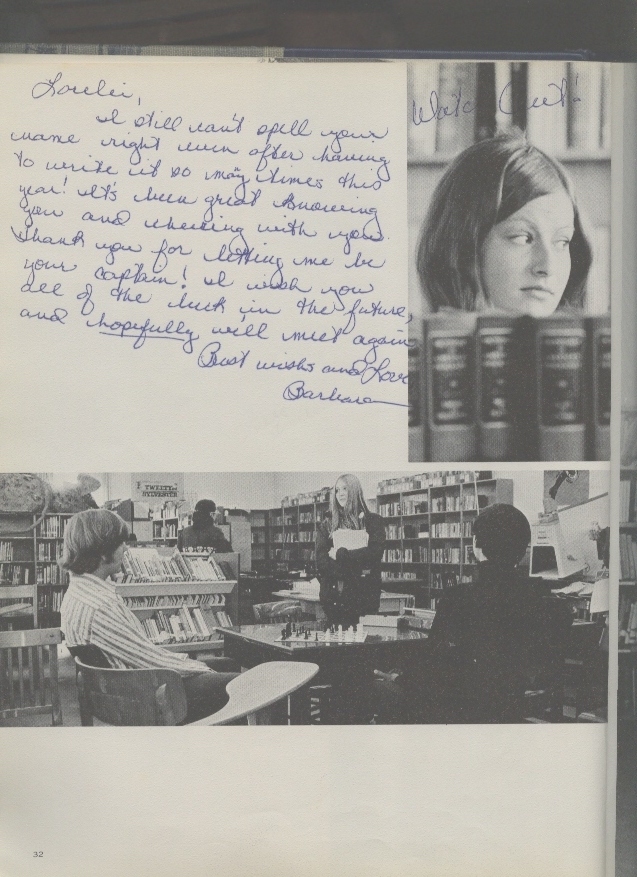 Lorelei,
I still can't spell your
name right even after having
to write it so may times this
year! It's been great knowing
you and cheering with you.
Thank you for letting me be
your captain! I wish you
all of the luck in the future,
and hopefully will meet again
Best wishes and Love
Barbara
Watch Out!
TWEETY and
SYLVESTER
32